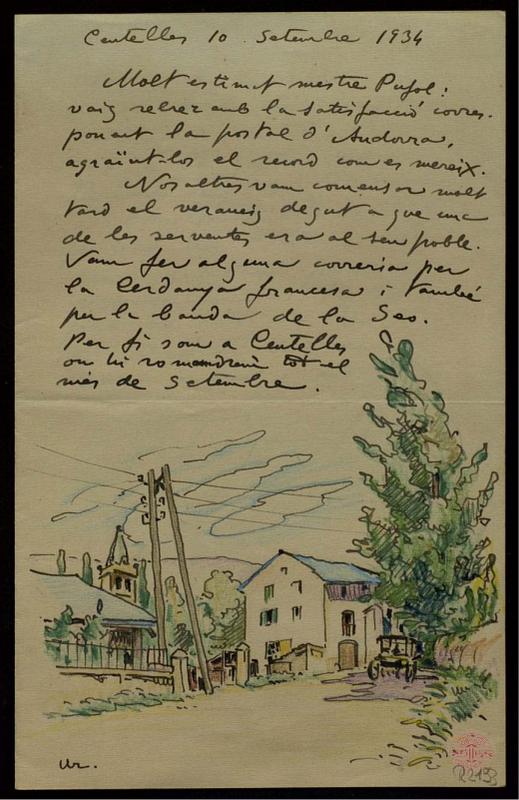 Centelles 10 Setembre 1934
Molt estimat mestre Pujol:
vaig rebrer amb la satisfacció corres-
ponent la postal d'Andorra,
agraïnt-los el record com es mereix.
Nosaltres vam comensar molt
tard el veraneig degut a que una
de les serventes era al seu poble.
Vam fer alguna correria per
la Cerdanya francesa i també
per la banda de la Seo.
Per fi som a Centelles
on hi romandrem tot el
mes de Setembre.
R2133